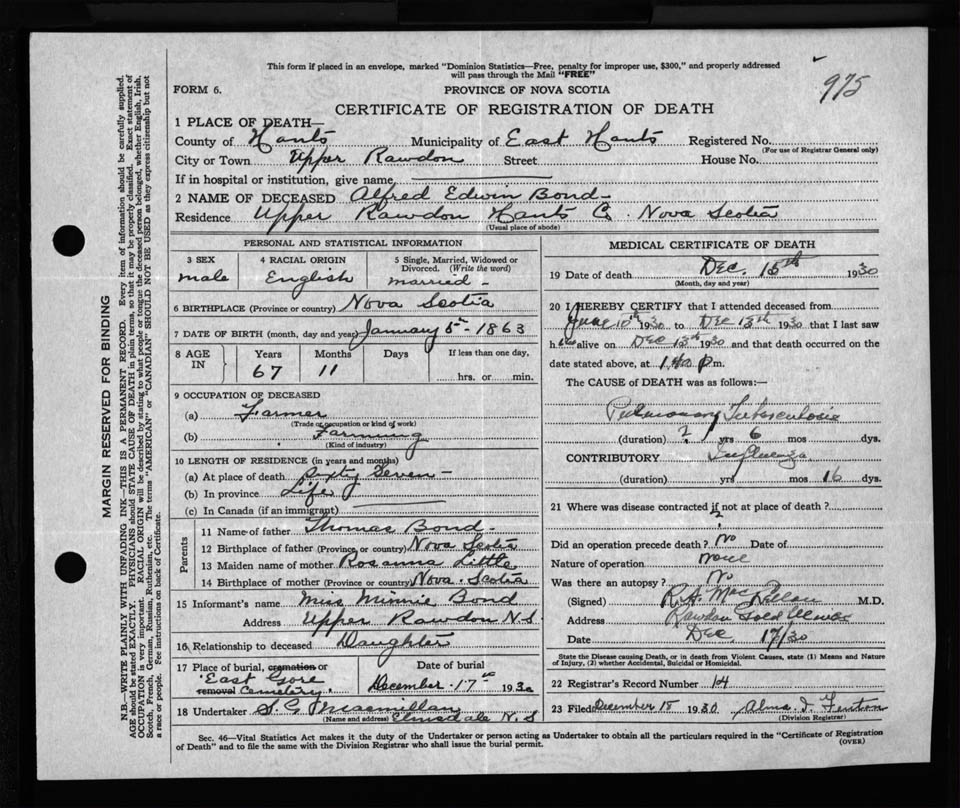 This form if placed in an envelope, marked "Dominion Statistics—Free, penalty for improper use, $300," and properly addressed
will pass through the Mail "FREE"
975
FORM 6.
PROVINCE OF NOVA SCOTIA
CERTIFICATE OF REGISTRATION OF DEATH
1 PLACE OF DEATH—
County of Hants Municipality of East Hants Registered No.
(For use of Registrar General only)
City or Town Upper Rawdon Street House No.
If in hospital or institution, give name
2 NAME OF DECEASED Alfred Edwin Bond
Residence Upper Rawdon Hants Co. Nova Scotia
(Usual place of abode)
MARGIN RESERVED FOR BINDING
N.B.—WRITE PLAINLY WITH UNFADING INK—THIS IS A PERMANENT RECORD. Every item of information should be carefully supplied.
AGE should be stated EXACTLY. PHYSICIANS should STATE CAUSE OF DEATH in plain terms, so that it may be properly classified. Exact statement of
OCCUPATION is very important. RACIAL ORIGIN will be described by stating to what people or tongue the deceased person belonged, whether English, Irish,
Scotch, French, German, Russian, Ruthenian, etc. The terms "AMERICAN" or "CANADIAN" SHOULD NOT BE USED as they express citizenship but not
a race or people. See instructions on back of Certificate.
PERSONAL AND STATISTICAL INFORMATION
3 SEX
male
4 RACIAL ORIGIN
English
5 Single, Married, Widowed or
Divorced. (Write the word)
married
6 BIRTHPLACE (Province or country) Nova Scotia
7 DATE OF BIRTH (month, day and year) January 5th 1863
8 AGE
IN
Years
67
Months
11
Days
If less than one day,
hrs. or min.
9 OCCUPATION OF DECEASED
(a) Farmer
(Trade or occupation or kind of work)
(b) Farming
(Kind of industry)
10 LENGTH OF RESIDENCE (in years and months)
(a) At place of death Sixty Seven
(b) In province Life
(c) In Canada (if an immigrant)
Parents
11 Name of father Thomas Bond
12 Birthplace of father (Province or country) Nova Scotia
13 Maiden name of mother Rosanna Little
14 Birthplace of mother (Province or country) Nova Scotia
15 Informant's name Miss Minnie Bond
Address Upper Rawdon N.S
16 Relationship to deceased Daughter
17 Place of burial, cremation or
removal
East Gore
Cemetery
Date of burial
December 17th 1930
18 Undertaker S. G Macmillan
(Name and address) Elmsdale N.S
MEDICAL CERTIFICATE OF DEATH
19 Date of death Dec. 15th 1930
(Month, day and year)
20 I HEREBY CERTIFY that I attended deceased from
June 10th 1930 to Dec 15th 1930 that I last saw
h alive on Dec 15th 1930 and that death occurred on the
date stated above, at 1.40 p m.
The CAUSE OF DEATH was as follows:—
Pulmonary Tuberculosis
(duration) 2 yrs 6 mos dys.
CONTRIBUTORY Influenza
(duration) yrs mos 16 dys.
21 Where was disease contracted if not at place of death?
?
Did an operation precede death? No Date of
Nature of operation None
Was there an autopsy? No
(Signed) M.D.
Address Rawdon Gold Mines
Date Dec 17/30
State the Disease causing Death, or in death from Violent Causes, state (1) Means and Nature
of Injury, (2) whether Accidental, Suicidal or Homicidal.
22 Registrar's Record Number 14
23 Filed December 18 1930 Alma I. Fenton
(Division Registrar)
Sec. 46—Vital Statistics Act makes it the duty of the Undertaker or person acting as Undertaker to obtain all the particulars required in the "Certificate of Registration
of Death" and to file the same with the Division Registrar who shall issue the burial permit.
(OVER)